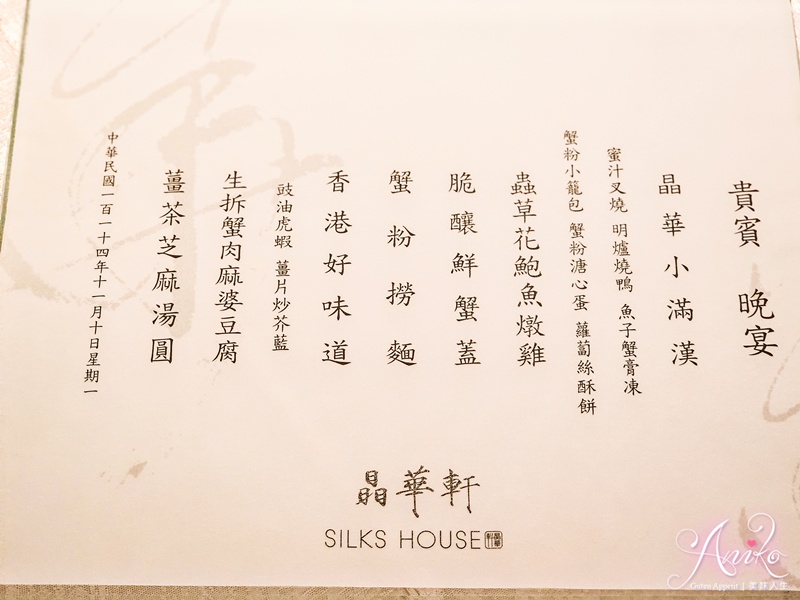 貴賓 晚宴
晶華小滿漢
蜜汁叉燒 明爐燒鴨 魚子蟹膏凍
蟹粉小籠包 蟹粉溏心蛋 蘿蔔絲酥餅
蟲草花鮑魚燉雞
脆釀鮮蟹蓋
蟹粉撈麵
香港好味道
豉油虎蝦 薑片炒芥藍
生拆蟹肉麻婆豆腐
薑茶芝麻湯圓
中華民國一百一十四年十一月十日星期一
晶華軒
SILKS HOUSE
Aniko
Guten Appetit | 美味人生